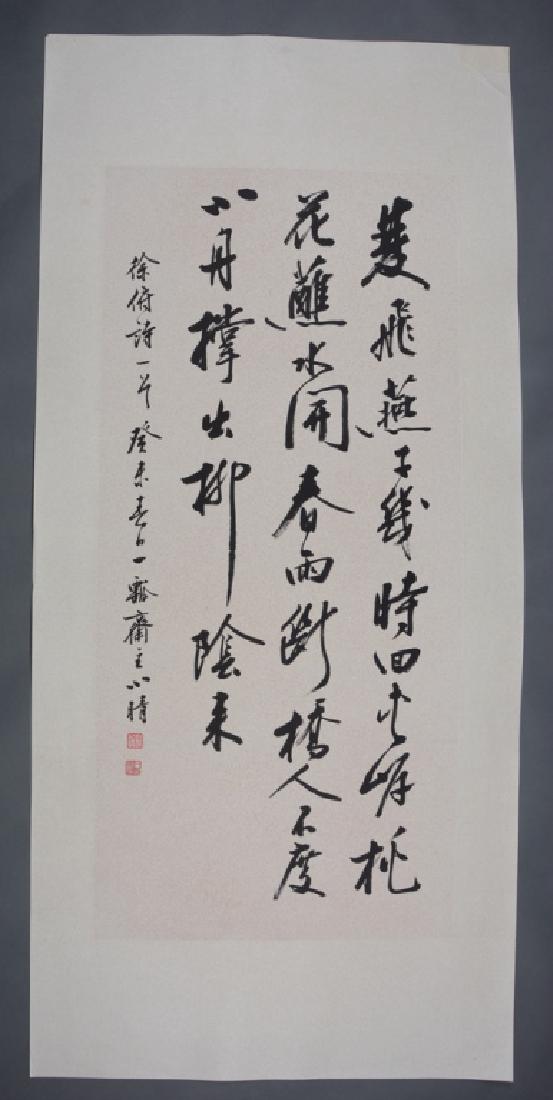 雙飛燕子幾時回夾岸桃
花蘸水開春雨斷橋人不度
小舟撐出柳陰来
徐俯詩一首 癸未春日一齋主小晴